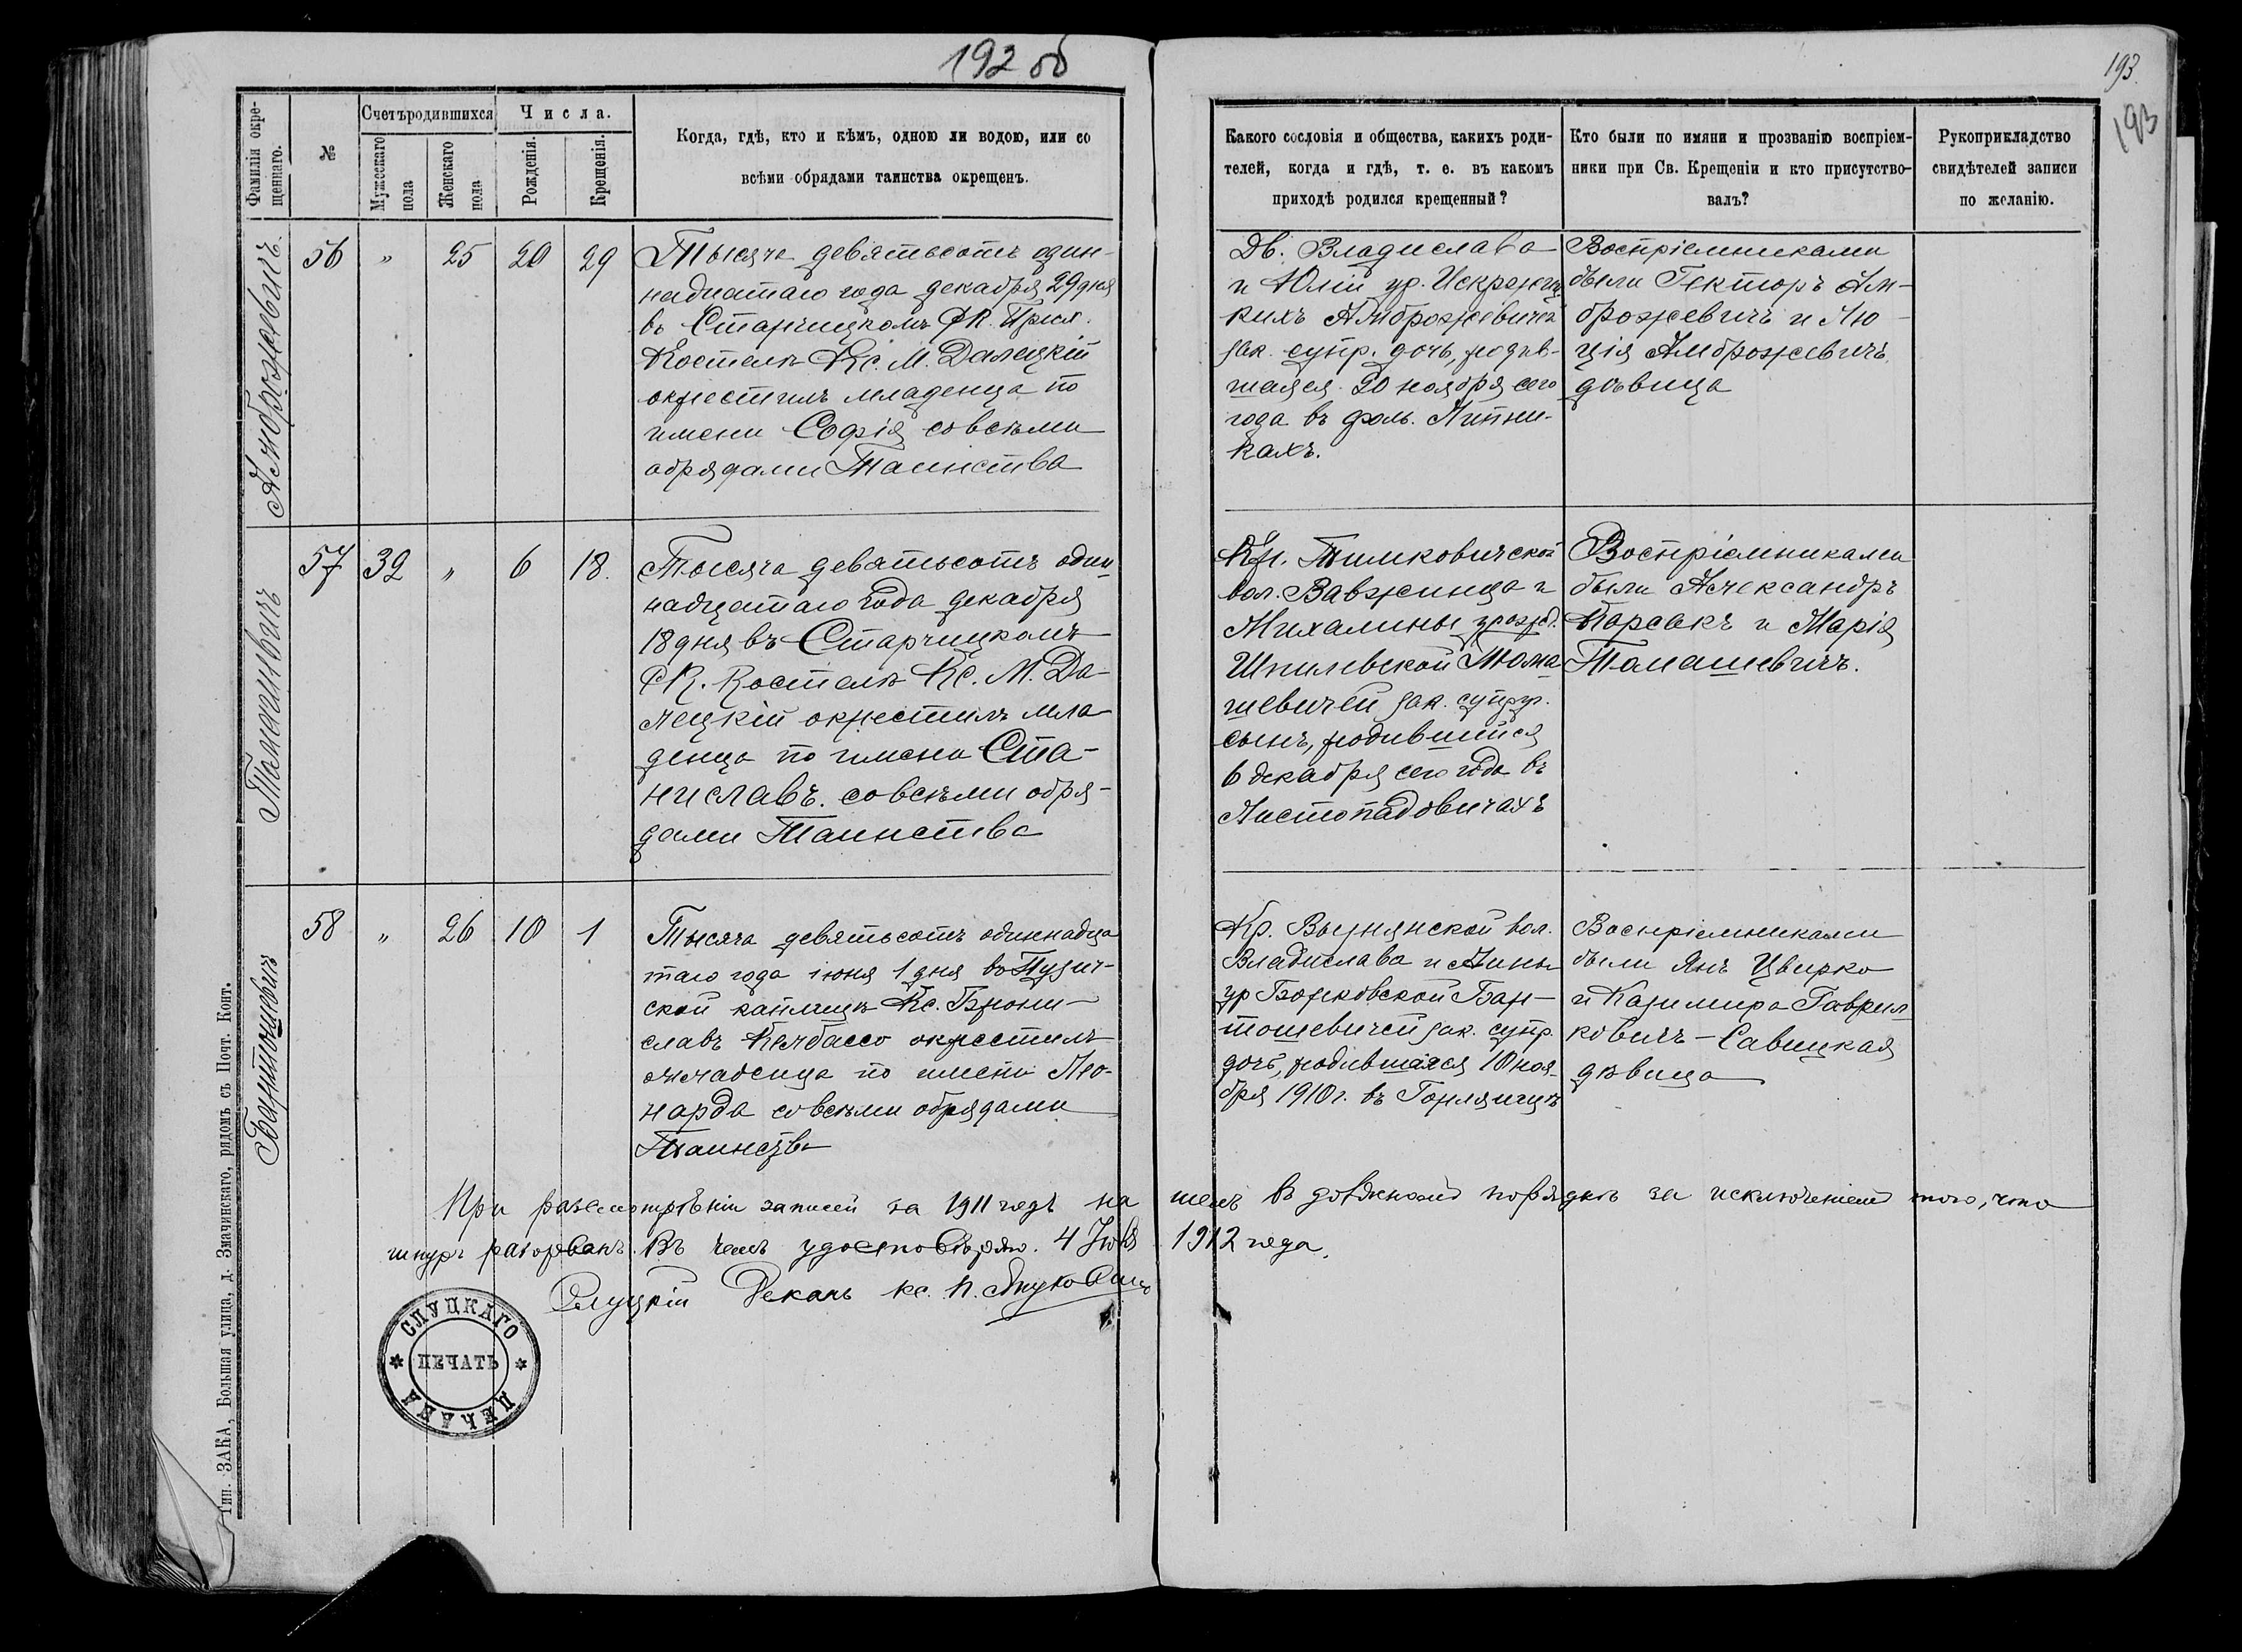 192 об
193.
193
Фамилія окре-
щеннаго.
№
Счетъ родившихся
Мужескаго
пола
Женскаго
пола
Числа.
Рожденія.
Крещенія.
Когда, гдѣ, кто и кѣмъ, одною ли водою, или со
всѣми обрядами таинства окрещенъ.
Какого сословія и общества, какихъ роди-
телей, когда и гдѣ, т. е. въ какомъ
приходѣ родился крещенный?
Кто были по имяни и прозванію воспріем-
ники при Св. Крещеніи и кто присутство-
валъ?
Рукоприкладство
свидѣтелей записи
по желанію.
Амброжевичъ.
56 " 25 20 29
Тысяча девятьсотъ один-
надцатаго года декабря 29 дня
въ Старчицкомъ РК. Прих.
Костелѣ Кс. М. Далецкій
окрестилъ младенца по
имени Софія со всѣми
обрядами Таинства
Дв. Владислава
и Юліи ур. Искрениц-
кихъ Амброжевичей
зак. супр. дочь, родив-
шаяся 20 ноября сего
года въ фоль. Липни-
кахъ.
Воспріемниками
были Гекторъ Ам-
брожевичъ и Лю-
ція Амброжевичъ
дѣвица
Томашевичъ
57 32 " 6 18.
Тысяча девятьсотъ один
надцатаго года декабря
18 дня въ Старчицкомъ
РК. Костелѣ Кс. М. Да-
лецкій окрестилъ мла
денца по имени Ста-
ниславъ. со всѣми обря-
дами Таинства
Кр. Тимковичской
вол. Вавжинца и
Михалины урожд.
Шпилевской Тома
шевичей зак. супр.
сынъ, родившійся
6 декабря сего года въ
Листопадовичахъ
Воспріемниками
были Александръ
Корсакъ и Марія
Томашевичъ.
Бартошевичъ
58 " 26 10 1
Тысяча девятьсотъ одиннадца
таго года іюня 1 дня во
ской каплицѣ Кс. Брони-
славъ окрестилъ
младенца по имени Лео-
нарда со всѣми обрядами
Таинства
Кр. Вызнянской вол.
Владислава и Анны
ур Борковской Бар-
тошевичей зак. супр.
дочь, родившаяся 10 ноя-
бря 1910 г. въ
Воспріемниками
были Янъ Цвирко
и Казимира Гаврил
ковичъ - Савицкая
дѣвица
При разсмотрѣніи записей за 1911 годъ на шелъ въ должномъ порядкѣ за исключеніемъ того, что
шнуръ разорванъ. Въ чемъ удостовѣряю. 4 Іюля 1912 года.
Слуцкій Деканъ кс. П.
СЛУЦКАГО
ПЕЧАТЬ
ДЕКАНА
Тип. ЗАКА, Большая улица, д. Змачинскаго, рядомъ съ Почт. Конт.